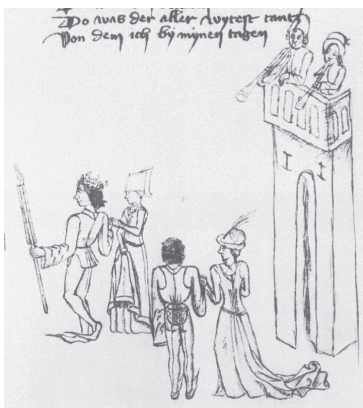 Do was der aller wytest tantz
Von dem ich by mynen tagen